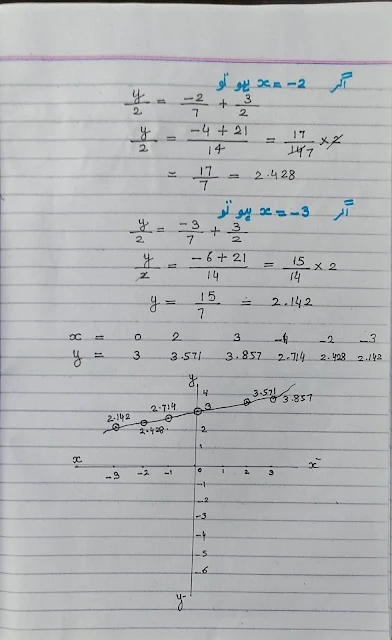 اگر x = -2 ہو تو
y/2 = -2/7 + 3/2
y/2 = (-4 + 21)/14 = 17/14 7 × 2
= 17/7 = 2.428
اگر x = -3 ہو تو
y/2 = -3/7 + 3/2
y/2 = (-6 + 21)/14 = 15/14 × 2
y = 15/7 = 2.142
x = 0 2 3 -1 -2 -3
y = 3 3.571 3.857 2.714 2.428 2.142
y
4
3.571
3.857
3
2.714
2.142
2.428
2
1
x -3 -2 -1 0 1 2 3 x⁻
-1
-2
-3
-4
-5
-6
y⁻